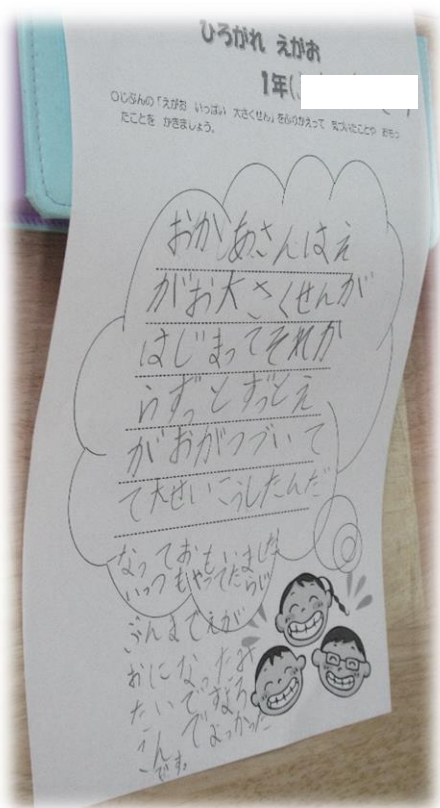 ひろがれ えがお
1年(
○じぶんの「えがお いっぱい 大さくせん」を ふりかえって 気づいたことや おもっ
たことを かきましょう。
おかあさんはえ
がお大さくせんが
はじまってそれか
らずっとずっとえ
がおがつづいて
て大せいこうしたんだ
なっておもいました
いっつもやってたらじ
ぶんまでえが
おになったみ
たいです
でよっかった
です。